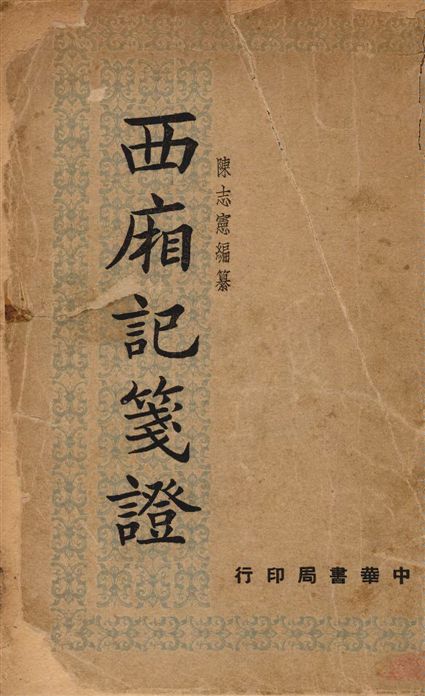 西廂記箋證
陳志憲編纂
中華書局印行